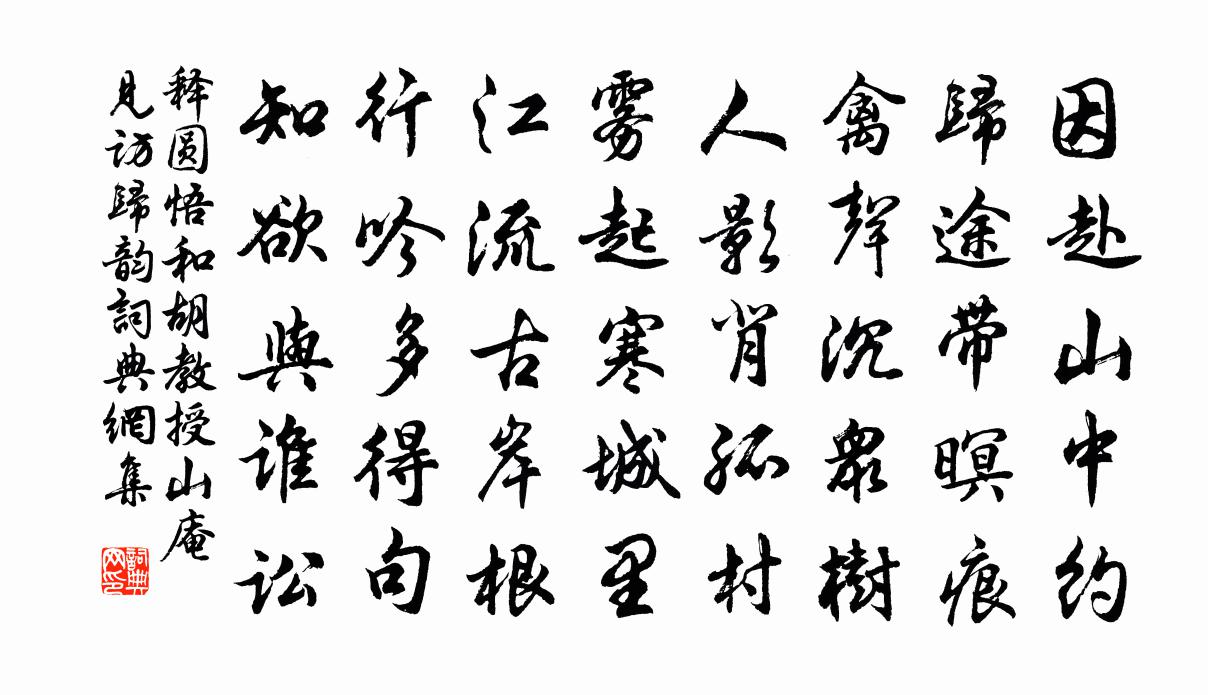 因赴山中约
歸途带暝痕
禽聲沉衆樹
人影背孤村
雾起寒城里
江流古岸根
行吟多得句
知欲與谁讼
释圆悟和胡教授山庵
見访歸韵詞典網集
詞典网印